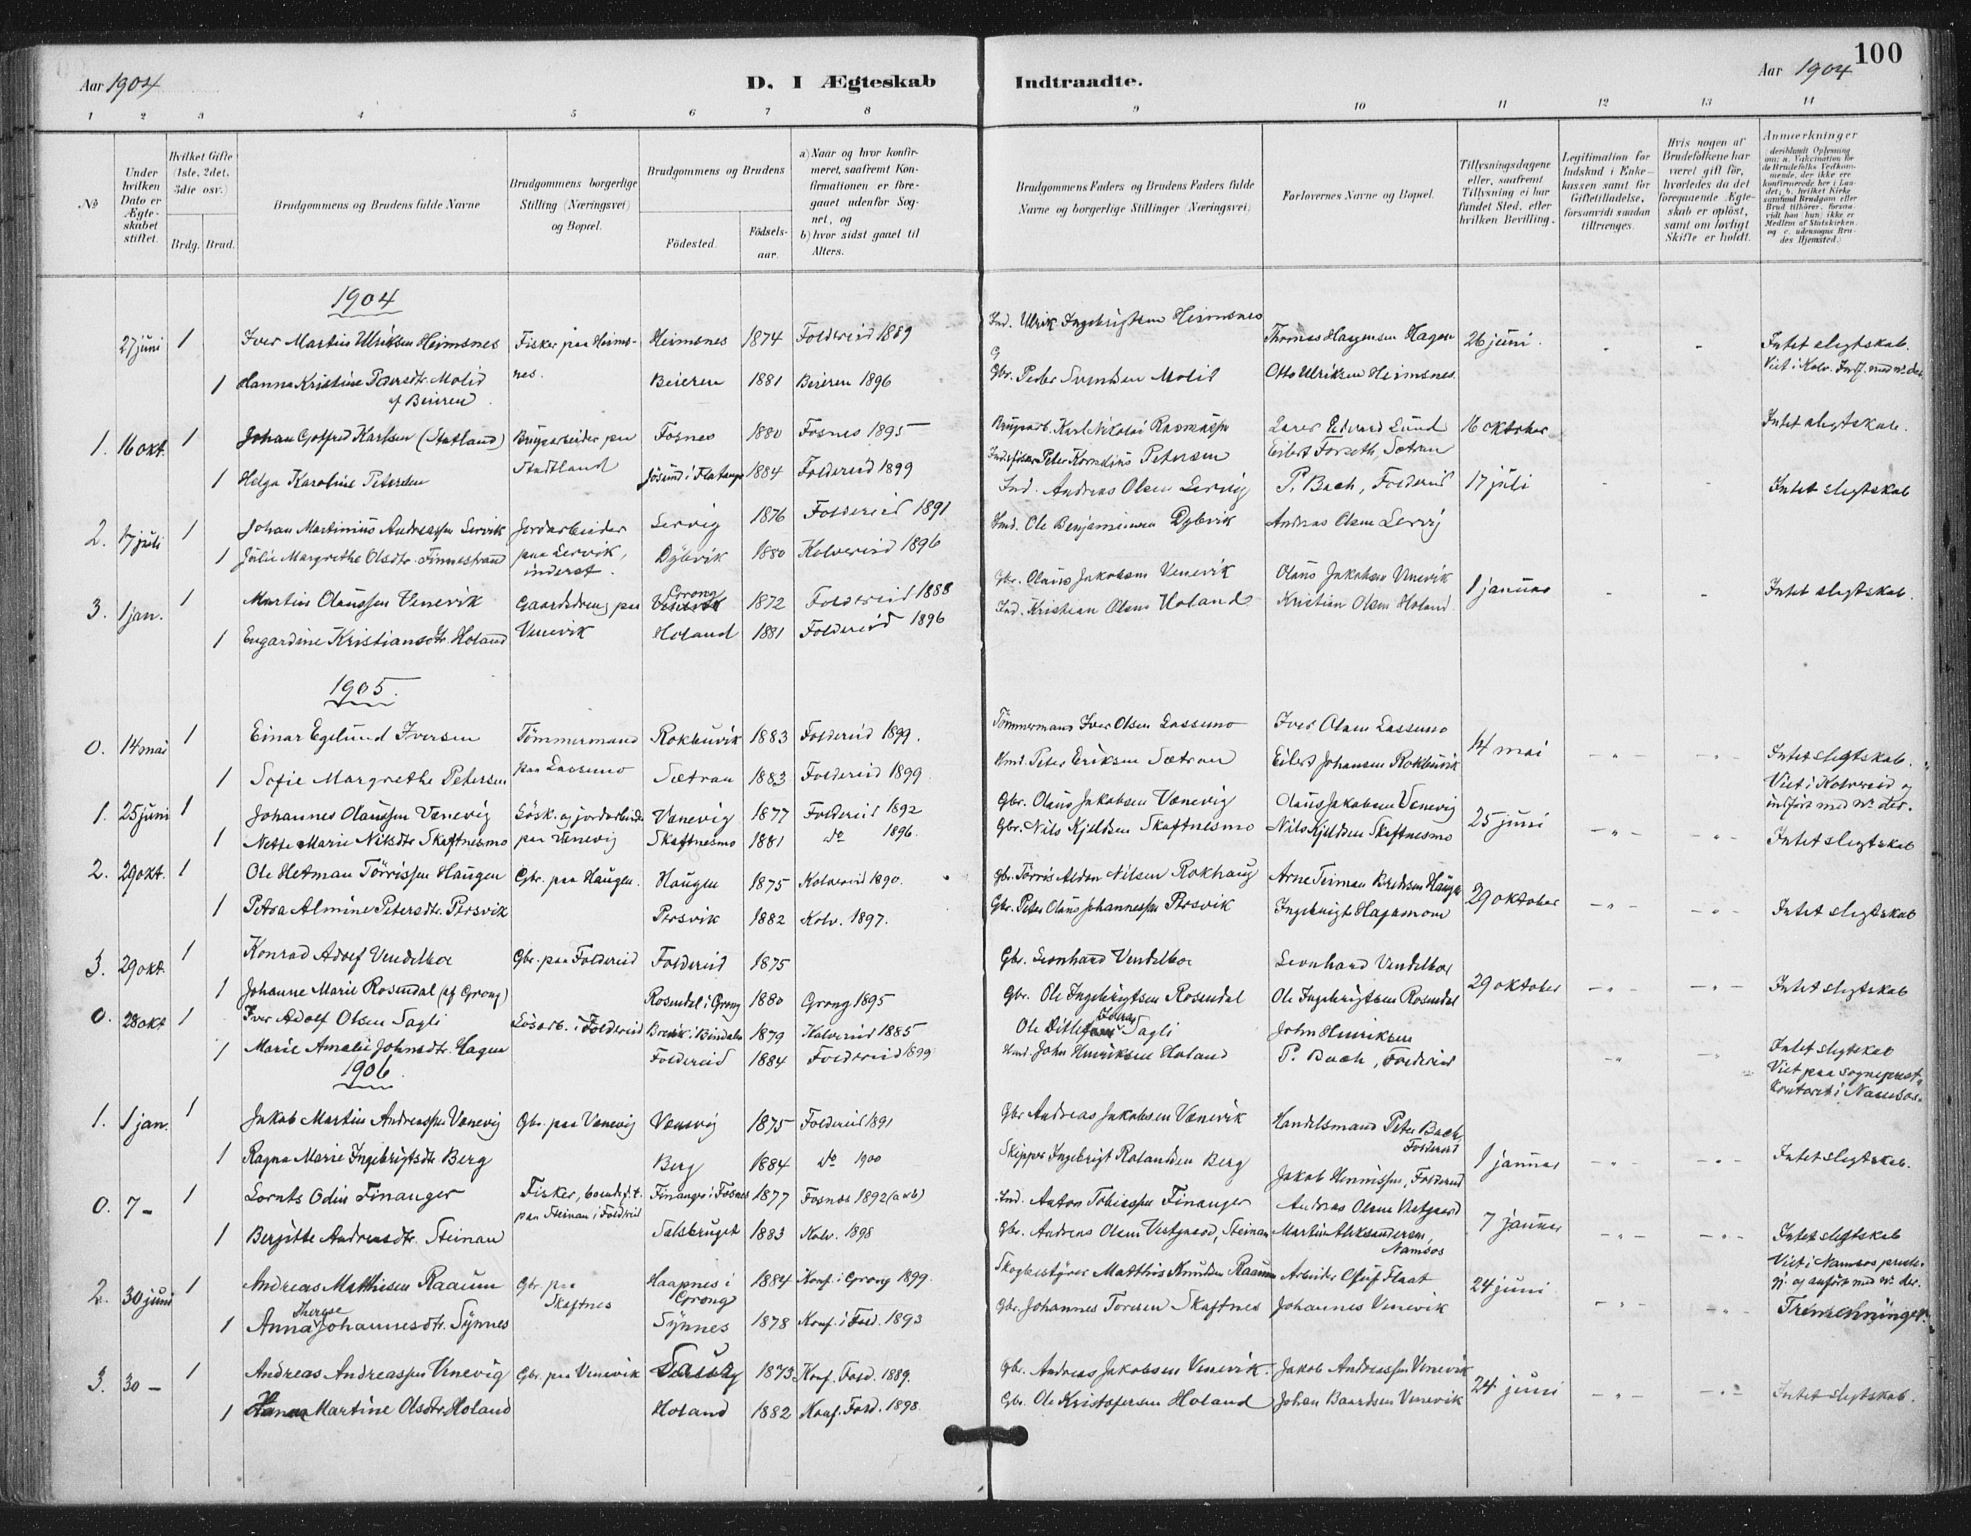 Aar 1904 D. I Ægteskab Indtraadte. Aar 1904 100
1 2 3 4 5 6 7 8 9 10 11 12 13 14
No
Under hvilken Dato er Ægteskabet stiftet.
Hvilket Gifte (1ste, 2det, 3die osv.)
Brdg. Brud.
Brudgommens og Brudens fulde Navne
Brudgommens borgerlige Stilling (Næringsvei) og Bopæl.
Brudgommens og Brudens
Födested.
Födselsaar.
a) Naar og hvor konfirmeret, saafremt Konfirmationen er foregaaet udenfor Sognet, og
b) hvor sidst gaaet til Alters.
Brudgommens Faders og Brudens Faders fulde Navne og borgerlige Stillinger (Næringsvei)
Forlovernes Navne og Bopæl.
Tillysningsdagene eller, saafremt Tillysning ei har fundet Sted, efter hvilken Bevilling.
Legitimation for Indskud i Enkekassen samt for Giftetilladelse, forsaavidt saadan tiltrænges.
Hvis nogen af Brudefolkene har været gift før, hvorledes da det foregaaende Ægteskab er oplöst, samt om lovligt Skifte er holdt.
Anmærkninger
(deriblandt Oplysning om: a. Vakcination for de Brudefolks Vedkommende, der ikke ere konfirmerede her i Landet; b. hvilket Kirkesamfund Brudgom eller Brud tilhörer, forsaavidt han (hun) ikke er Medlem af Statskirken, og c. udensogns Brudes Hjemsted.)
1904
27 juni 1 Iver Martin Ulriksen Heimsnes Fisker paa Heimsnes. Heimsnes 1874 Foldereid 1889 Ind. Ulrik Ingebrigtsen Heimsnes Thomas Hagensen Hagen 26 juni. Intet slegtskab.
1 Hanna Kristine Pedersdtr. Molid af Beieren Beieren 1881 Beieren 1896 Gbr. Peder Svendsen Molid Otto Ulriksen Heimsnes. Viet i Kolv. Indf. med nr. der.
1. 16 okt. 1 Johan Gotfred Karlsen (Statland) Brugsarbeider paa Statland Fosnes 1880 Fosnes 1895 Brugsarb. Karl Nikolai Rasmussen Lærer Edvard Lund 16 oktober Intet slegtskab.
1 Helga Karoline Petersen Jøsund i Flatanger 1884 Foldereid 1899 Ind. fisker Peter Kornelius Petersen Eilert Forseth, Sætran
2. 17 juli 1 Johan Martinius Andreassen Lervik Jordarbeider paa Lervik, inderst. Lervig 1876 Foldereid 1891 Ind. Andreas Olsen Lervig P. Bach, Foldereid 17 juli Intet slegtskab
1 Julie Margrethe Olsdtr. Finnestrand Dybvik 1880 Kolvereid 1896 Ind. Ole Benjaminsen Dybvik Andreas Olsen Lervig
3. 1 jan. 1 Martin Olaussen Venevik Gaardsdreng paa Venevik Grong 1872 Foldereid 1888 Gbr. Olaus Jakobsen Venevik Olaus Jakobsen Venevik 1 januar Intet slegtskab.
1 Engardine Kristiansdtr. Holand Holand 1881 Foldereid 1896 Ind. Kristian Olsen Holand Kristian Olsen Holand
1905.
0. 14 mai 1 Einar Egelund Iversen Tømmermand paa Lassemo Rokhuvik 1883 Foldereid 1899. Tømmermand Iver Olsen Lassemo Iver Olsen Lassemo 14 mai Intet slegtskab.
1 Sofie Margrethe Petersen Sætran 1883 Foldereid 1899 Ind. Peter Eriksen Sætran Eilert Johansen Rokhuvik Viet i Kolvereid og indført med nr. der.
1. 25 juni 1 Johannes Olaussen Venevig Løsk. og jordarbeider paa Venevig Venevig 1877 Foldereid 1892 Gbr. Olaus Jakobsen Venevig Olaus Jakobsen Venevig 25 juni Intet slegtskab
1 Nette Marie Nilsdtr. Skaftnesmo Skaftnesmo 1881 do 1896. Gbr. Nils Kjeldsen Skaftnesmo Nils Kjeldsen Skaftnesmo
2. 29 okt. 1 Ole Hetman Tørrissen Haugen Gbr. paa Haugen. Haugen 1875 Kolvereid 1890. Gbr. Tørris Aldon Nilsen Rokhaug Arne Teiman Bredesen Haugen 29 oktober Intet slegtskab
1 Petra Almine Petersdtr. Persvik Persvik 1882 Kolv. 1897. Gbr. Peter Olaus Johannessen Persvik Ingebrigt Hagensmo
3. 29 okt. 1 Konrad Adolf Vendelboe Gbr. paa Foldereid Foldereid 1875 Gbr. Leonhard Vendelboe Leonhard Vendelboe 29 oktober Intet slegtskab
1 Johanne Marie Rosendal (af Grong) Rosendal i Grong 1880 Grong 1895 Gbr. Ole Ingebrigtsen Rosendal Ole Ingebrigtsen Rosendal
0. 28 okt 1 Iver Adolf Olsen Sagli Løsarb. i Foldereid Brekk i Bindalen 1879 Kolvereid 1885 Ole Ditlef Sagli John Henriksen Intet slegtskab
1 Marie Amalie Johnsdtr. Hagen Foldereid 1884 Foldereid 1899 Ind. John Henriksen Holand P. Bach, Foldereid Viet paa sogneprestkontoret i Namsos.
1906
1. 1 jan. 1 Jakob Martin Andreassen Venevig Gbr. paa Venevig Venevig 1875 Foldereid 1891 Gbr Andreas Jakobsen Venevik Handelsmand Peter Bach, Foldereid 1 januar Intet slegtskab.
1 Ragna Marie Ingebrigtsdtr. Berg Berg 1884 do 1900 Skipper Ingebrigt Rolandsen Berg Jakob Henrissen, Foldereid
0. 7 – 1 Lornts Odin Finanger Fisker, boende f.t. paa Steinan i Foldereid Finanger i Fosnes 1877 Fosnes 1892 (a & b) Ind. Anton Tobiassen Finanger Andreas Olsen Vestgaard 7 januar Intet slegtskab
1 Bergitte Andreasdtr. Steinan Salsbruget 1883 Kolv. 1898 Gbr. Andreas Olsen Vestgaard, Steinan Martin Aleksandersen, Namsos Viet i Namsos prestegj. og anført med nr. der.
2. 30 juni 1 Andreas Matthisen Raaum Gbr. paa Skaftnes Haapnes i Grong 1884 Konf. i Grong 1899. Skogbestyrer Matthis Knudsen Raaum Arbeider Oluf Flaat 24 juni Tremenninger.
1 Anna Therese Johannesdtr. Synnes Synnes 1878 Konf. i Fold. 1893 Gbr. Johannes Toresen Skaftnes Johannes Venevik
3. 30 – 1 Andreas Andreassen Venevig Gbr. paa Venevik 1873 Konf. Fold. 1889. Gbr. Andreas Jakobsen Venevik. Jakob Andreassen Venevik 24 juni Intet slegtskab.
1 Hanna Martine Olsdtr. Holand Holand 1882 Konf. Fold. 1898 Gbr. Ole Kristofersen Holand Johan Baardsen Venevik